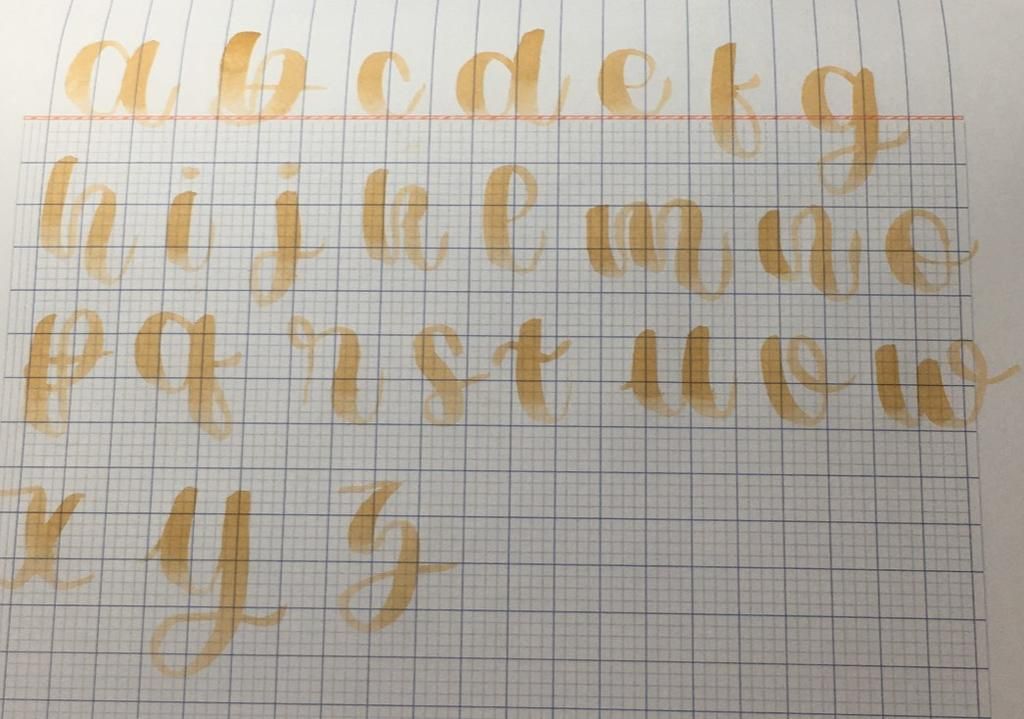 a b c d e f g
h i j k l m n o
p q r s t u v w
x y z